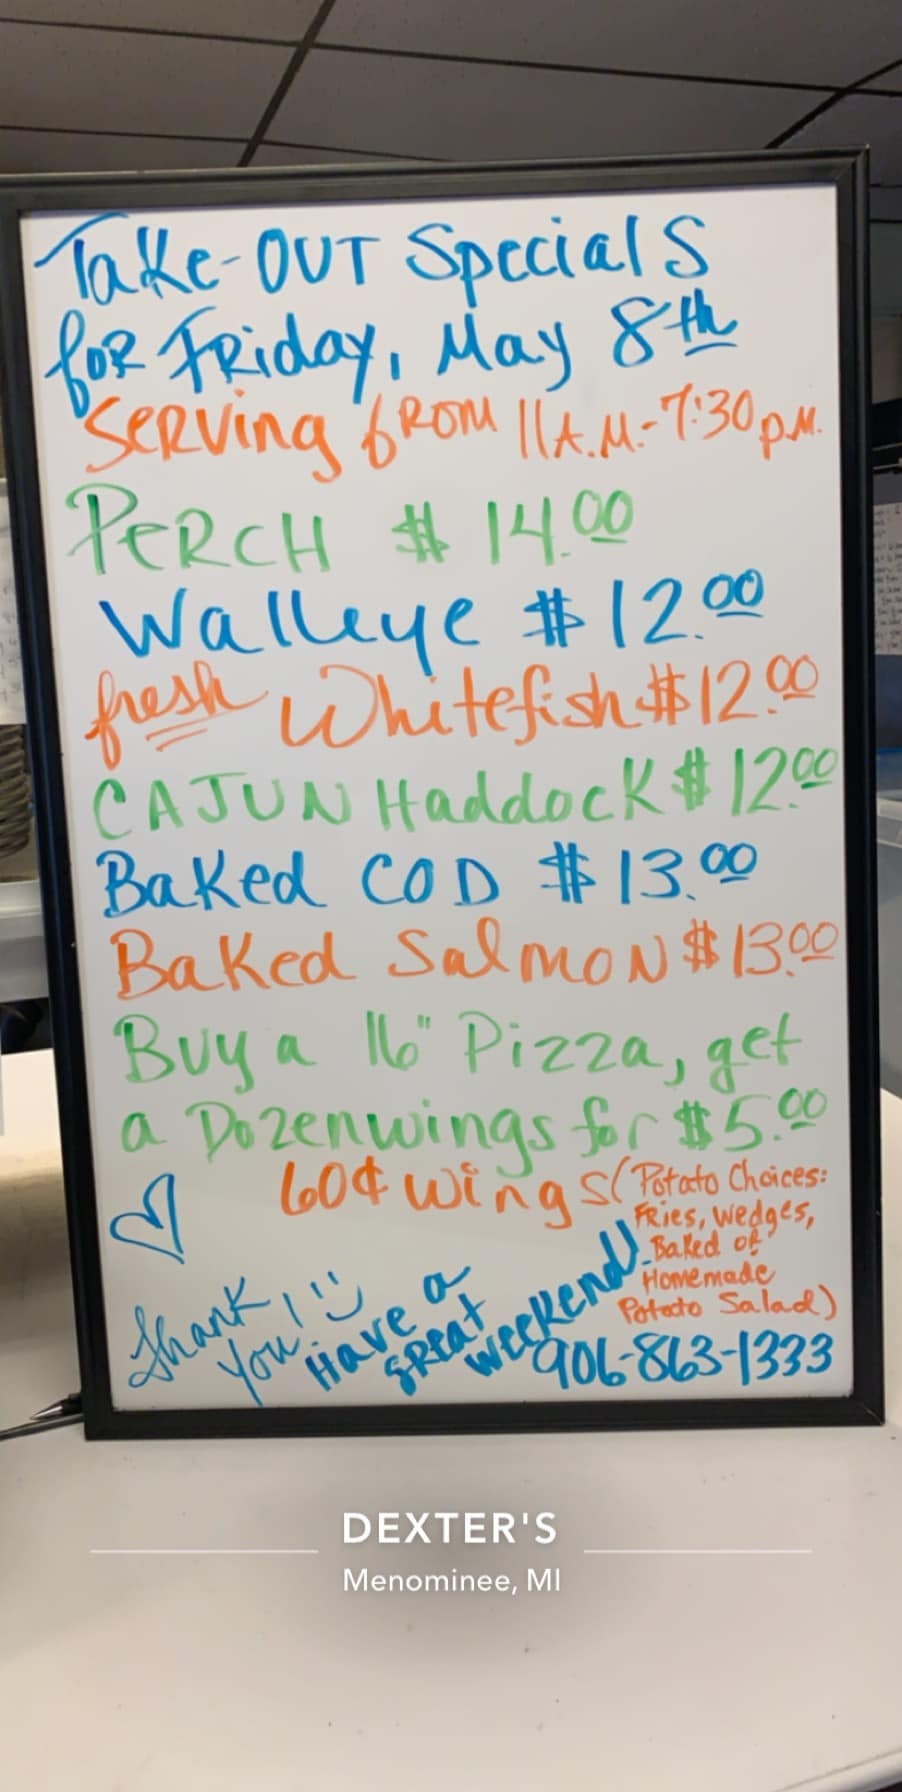 Take-OUT Specials
for Friday, May 8th
Serving from 11A.M.-7:30p.m.
PERCH $14.00
Walleye $12.00
fresh Whitefish $12.00
CAJUN Haddock $12.00
Baked COD $13.00
Baked Salmon $13.00
Buy a 16" Pizza, get
a Dozen wings for $5.00
60¢ wings (Potato Choices:
Fries, Wedges,
Baked or
Homemade
Potato Salad)
Thank
you!
Have a
great
weekend!
906-863-1333
DEXTER'S
Menominee, MI